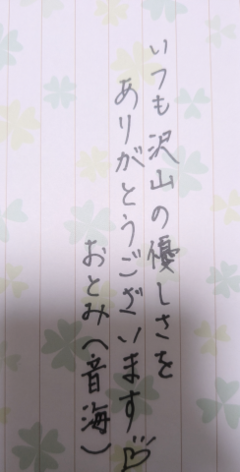 いつも沢山の優しさを
ありがとうございます♡
おとみ(音海)